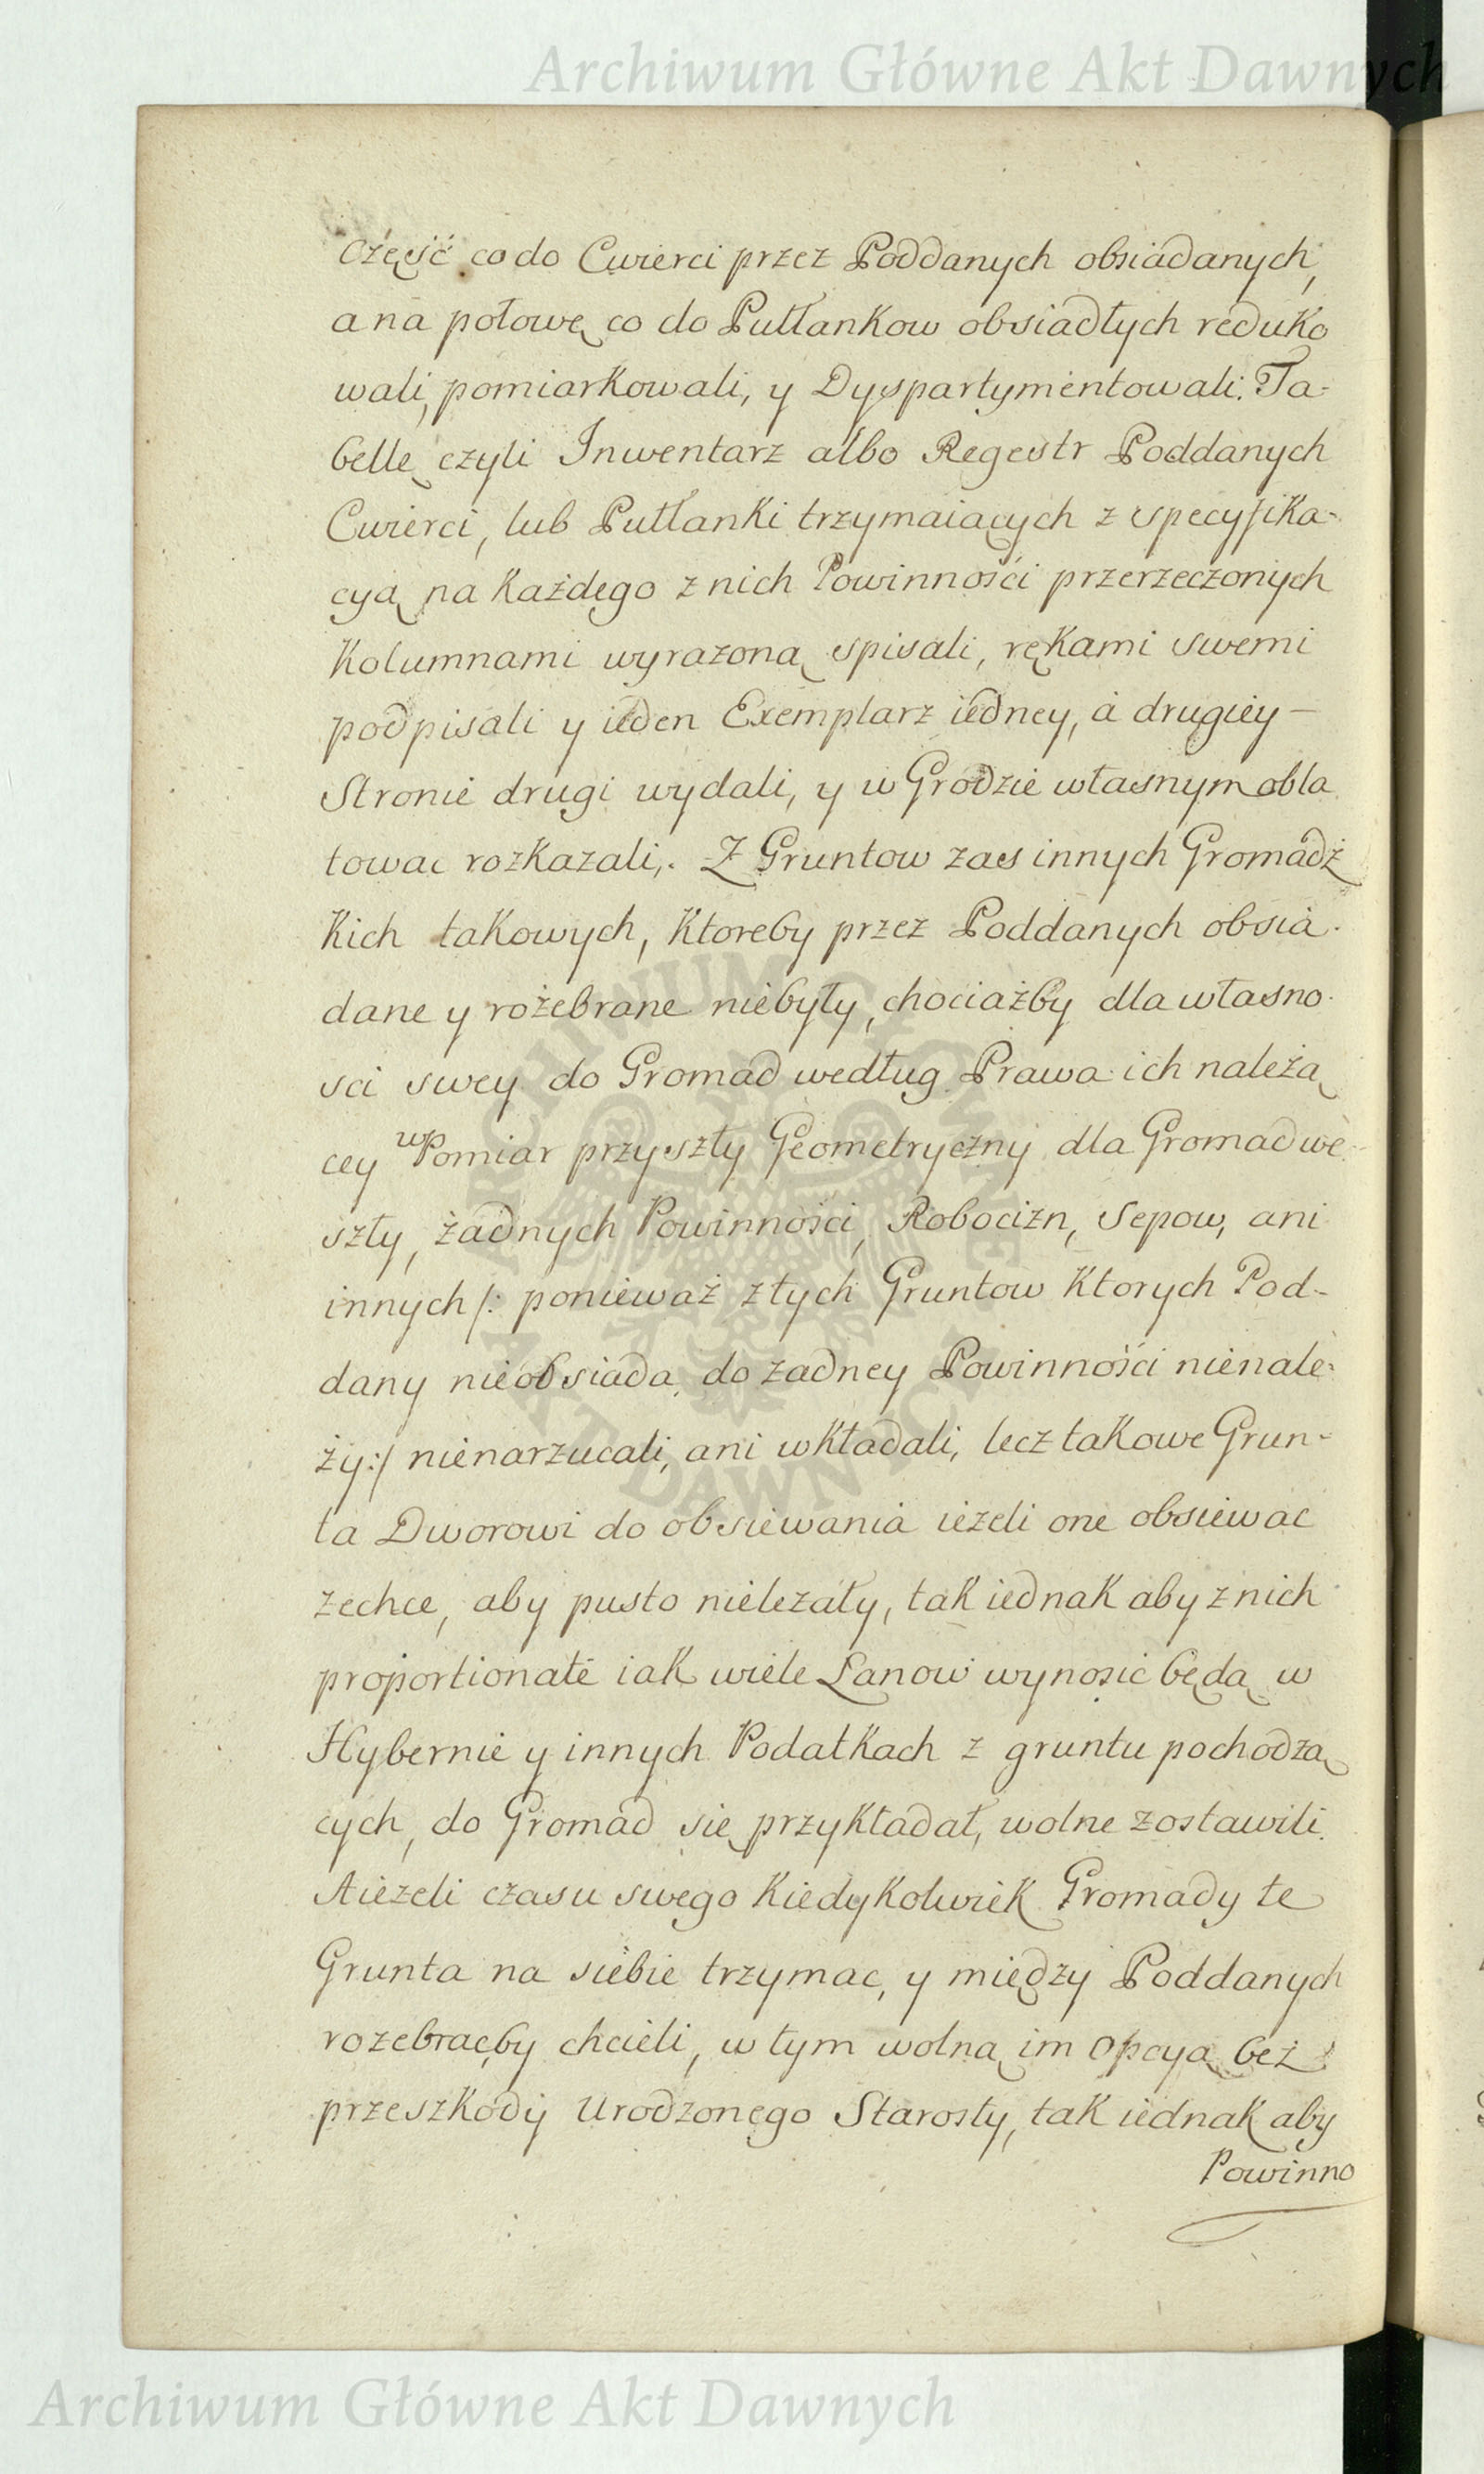 Archiwum Główne Akt Dawnych
część co do Cwierci przez Poddanych obsiadanych,
a na połowę co do Pułłankow obsiadłych reduko
wali, pomiarkowali, y Dyspartymentowali. Ta-
bellę czyli Inwentarz albo Regestr Poddanych
Cwierci, lub Pułłanki trzymaiących z specyfika-
cyą na każdego z nich Powinnośći przerzeczonych
kolumnami wyrazoną spisali, rękami swemi
podpisali y ieden Exemplarz iedney, á drugiey –
Stronie drugi wydali, y w Grodzie własnym obla
towac rozkazali,. Z Gruntow zas innych Gromadż
kich takowych, ktoreby przez Poddanych obsia-
dane y rożebrane niebyły, chociażby dla własno-
sci swey do Gromad według Prawa ich należą
cey w Pomiar przyszły Geometryczny dla Gromad we-
szły, żadnych Powinnośći, Robocizn, Sepow, ani
innych /: ponieważ z tych Gruntow ktorych Pod-
dany nieobsiada, do zadney Powinnośći nienale-
ży:/ nienarzucali, ani wkładali, lecz takowe Grun-
ta Dworowi do obsiewania ieżeli one obsiewać
zechce, aby pusto nielezały, tak iednak aby z nich
proportionaté iak wiele Łanow wynosić będą w
Hybernie y innych Podatkach z gruntu pochodzą
cych, do Gromad się przykładał, wolne zostawili.
A iezeli czasu swego kiedykolwiek Gromady te
Grunta na siebie trzymac, y między Poddanych
rozebracby chcieli, w tym wolną im opcyą beż
przeszkody Urodzonego Starosty, tak iednak aby
Powinno
ARCHIWUM GŁÓWNE
AKT DAWNYCH
Archiwum Główne Akt Dawnych